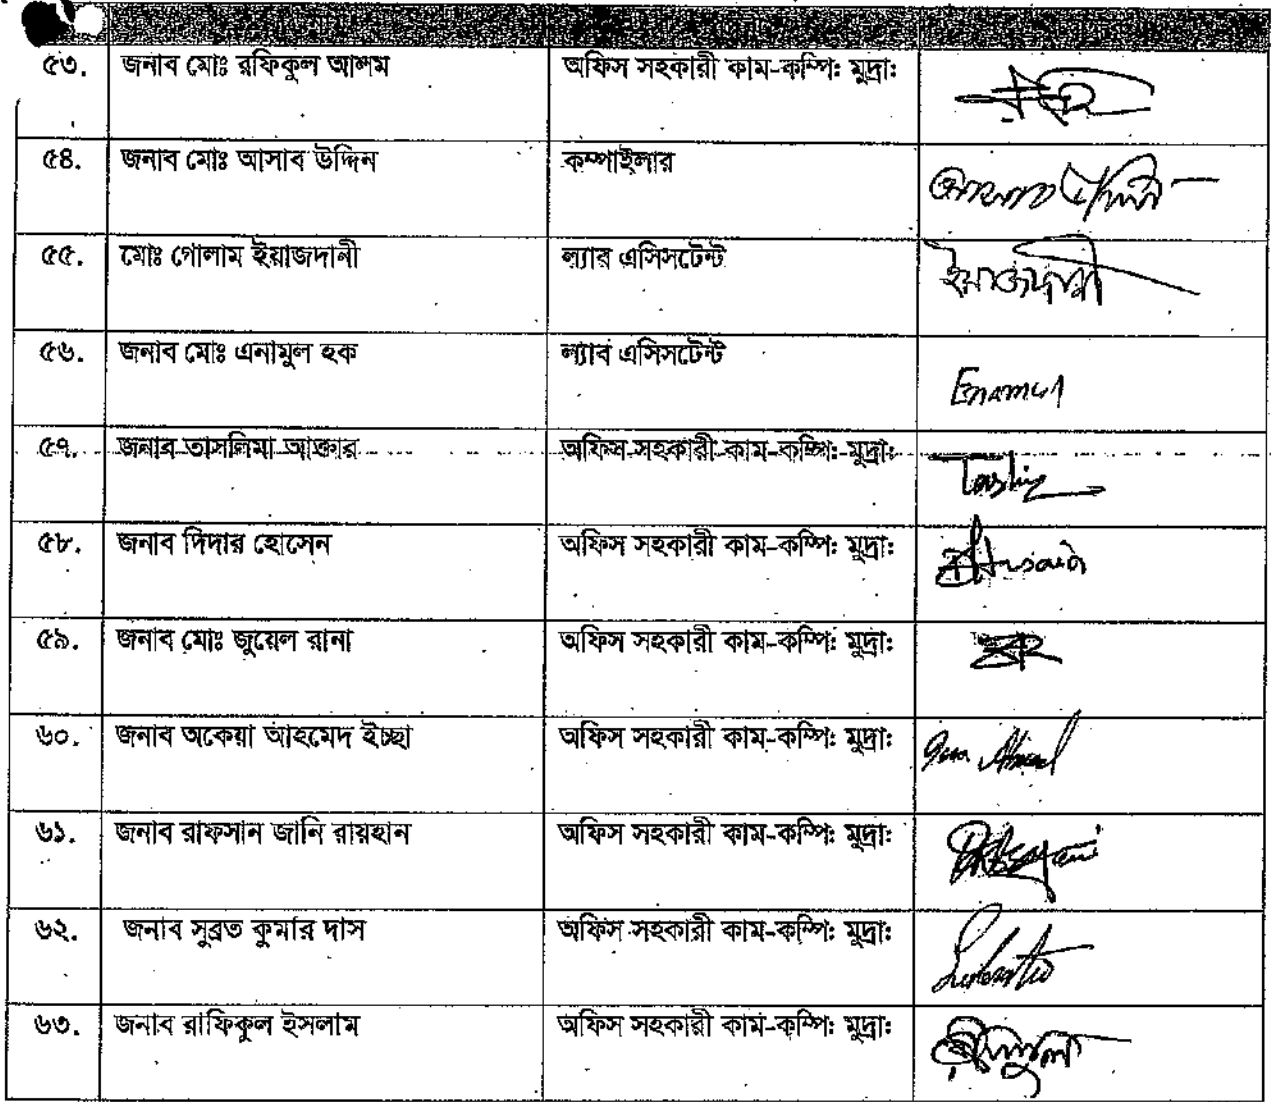 ৫৩. জনাব মোঃ রফিকুল আলম অফিস সহকারী কাম-কম্পিঃ মুদ্রাঃ
৫৪. জনাব মোঃ আসাব উদ্দিন কম্পাইলার
৫৫. মোঃ গোলাম ইয়াজদানী ল্যাব এসিসটেন্ট ইয়াজদানী
৫৬. জনাব মোঃ এনামুল হক ল্যাব এসিসটেন্ট Enamul
৫৭. জনাব তাসলিমা আক্তার অফিস সহকারী কাম-কম্পিঃ মুদ্রাঃ
৫৮. জনাব দিদার হোসেন অফিস সহকারী কাম-কম্পিঃ মুদ্রাঃ
৫৯. জনাব মোঃ জুয়েল রানা অফিস সহকারী কাম-কম্পিঃ মুদ্রাঃ
৬০. জনাব অকেয়া আহমেদ ইচ্ছা অফিস সহকারী কাম-কম্পিঃ মুদ্রাঃ
৬১. জনাব রাফসান জানি রায়হান অফিস সহকারী কাম-কম্পিঃ মুদ্রাঃ
৬২. জনাব সুব্রত কুমার দাস অফিস সহকারী কাম-কম্পিঃ মুদ্রাঃ
৬৩. জনাব রাফিকুল ইসলাম অফিস সহকারী কাম-কম্পিঃ মুদ্রাঃ